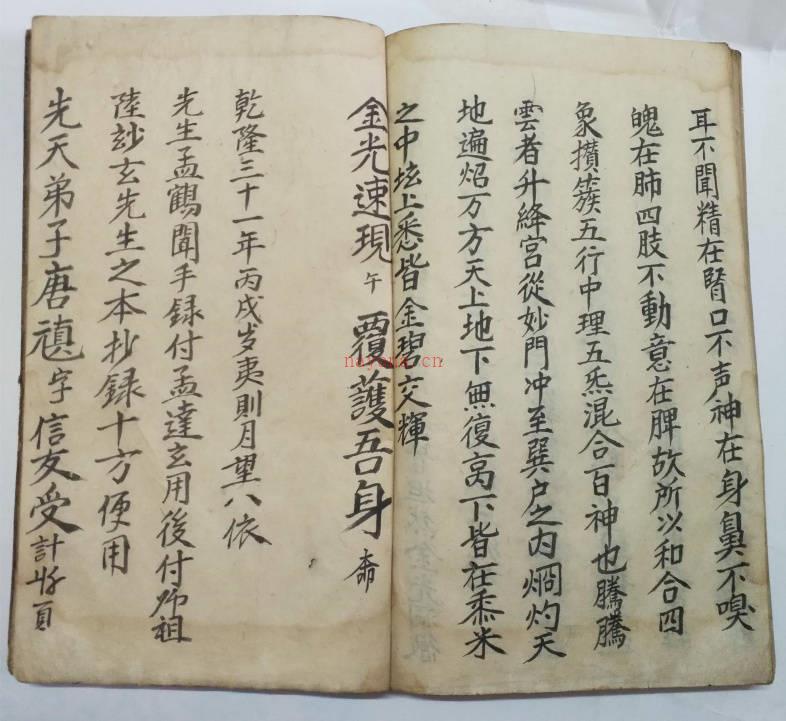 耳不聞精在腎口不声神在身鼻不嗅
魄在肺四肢不動意在脾故所以和合四
象攅簇五行中理五炁混合百神也騰騰
雲者升絳宮從妙門冲至巽户之内烱灼天
地遍炤万方天上地下無復高下皆在黍米
之中坛上悉皆金碧交輝
金光速現 午 覆護吾身
乾隆三十一年丙戌岁夷則月望八依
先生孟鶴聞手録付孟達玄用後付師祖
陸玅玄先生之本抄録十方便用
先天弟子唐禛字信友受計 頁
nayona.cn